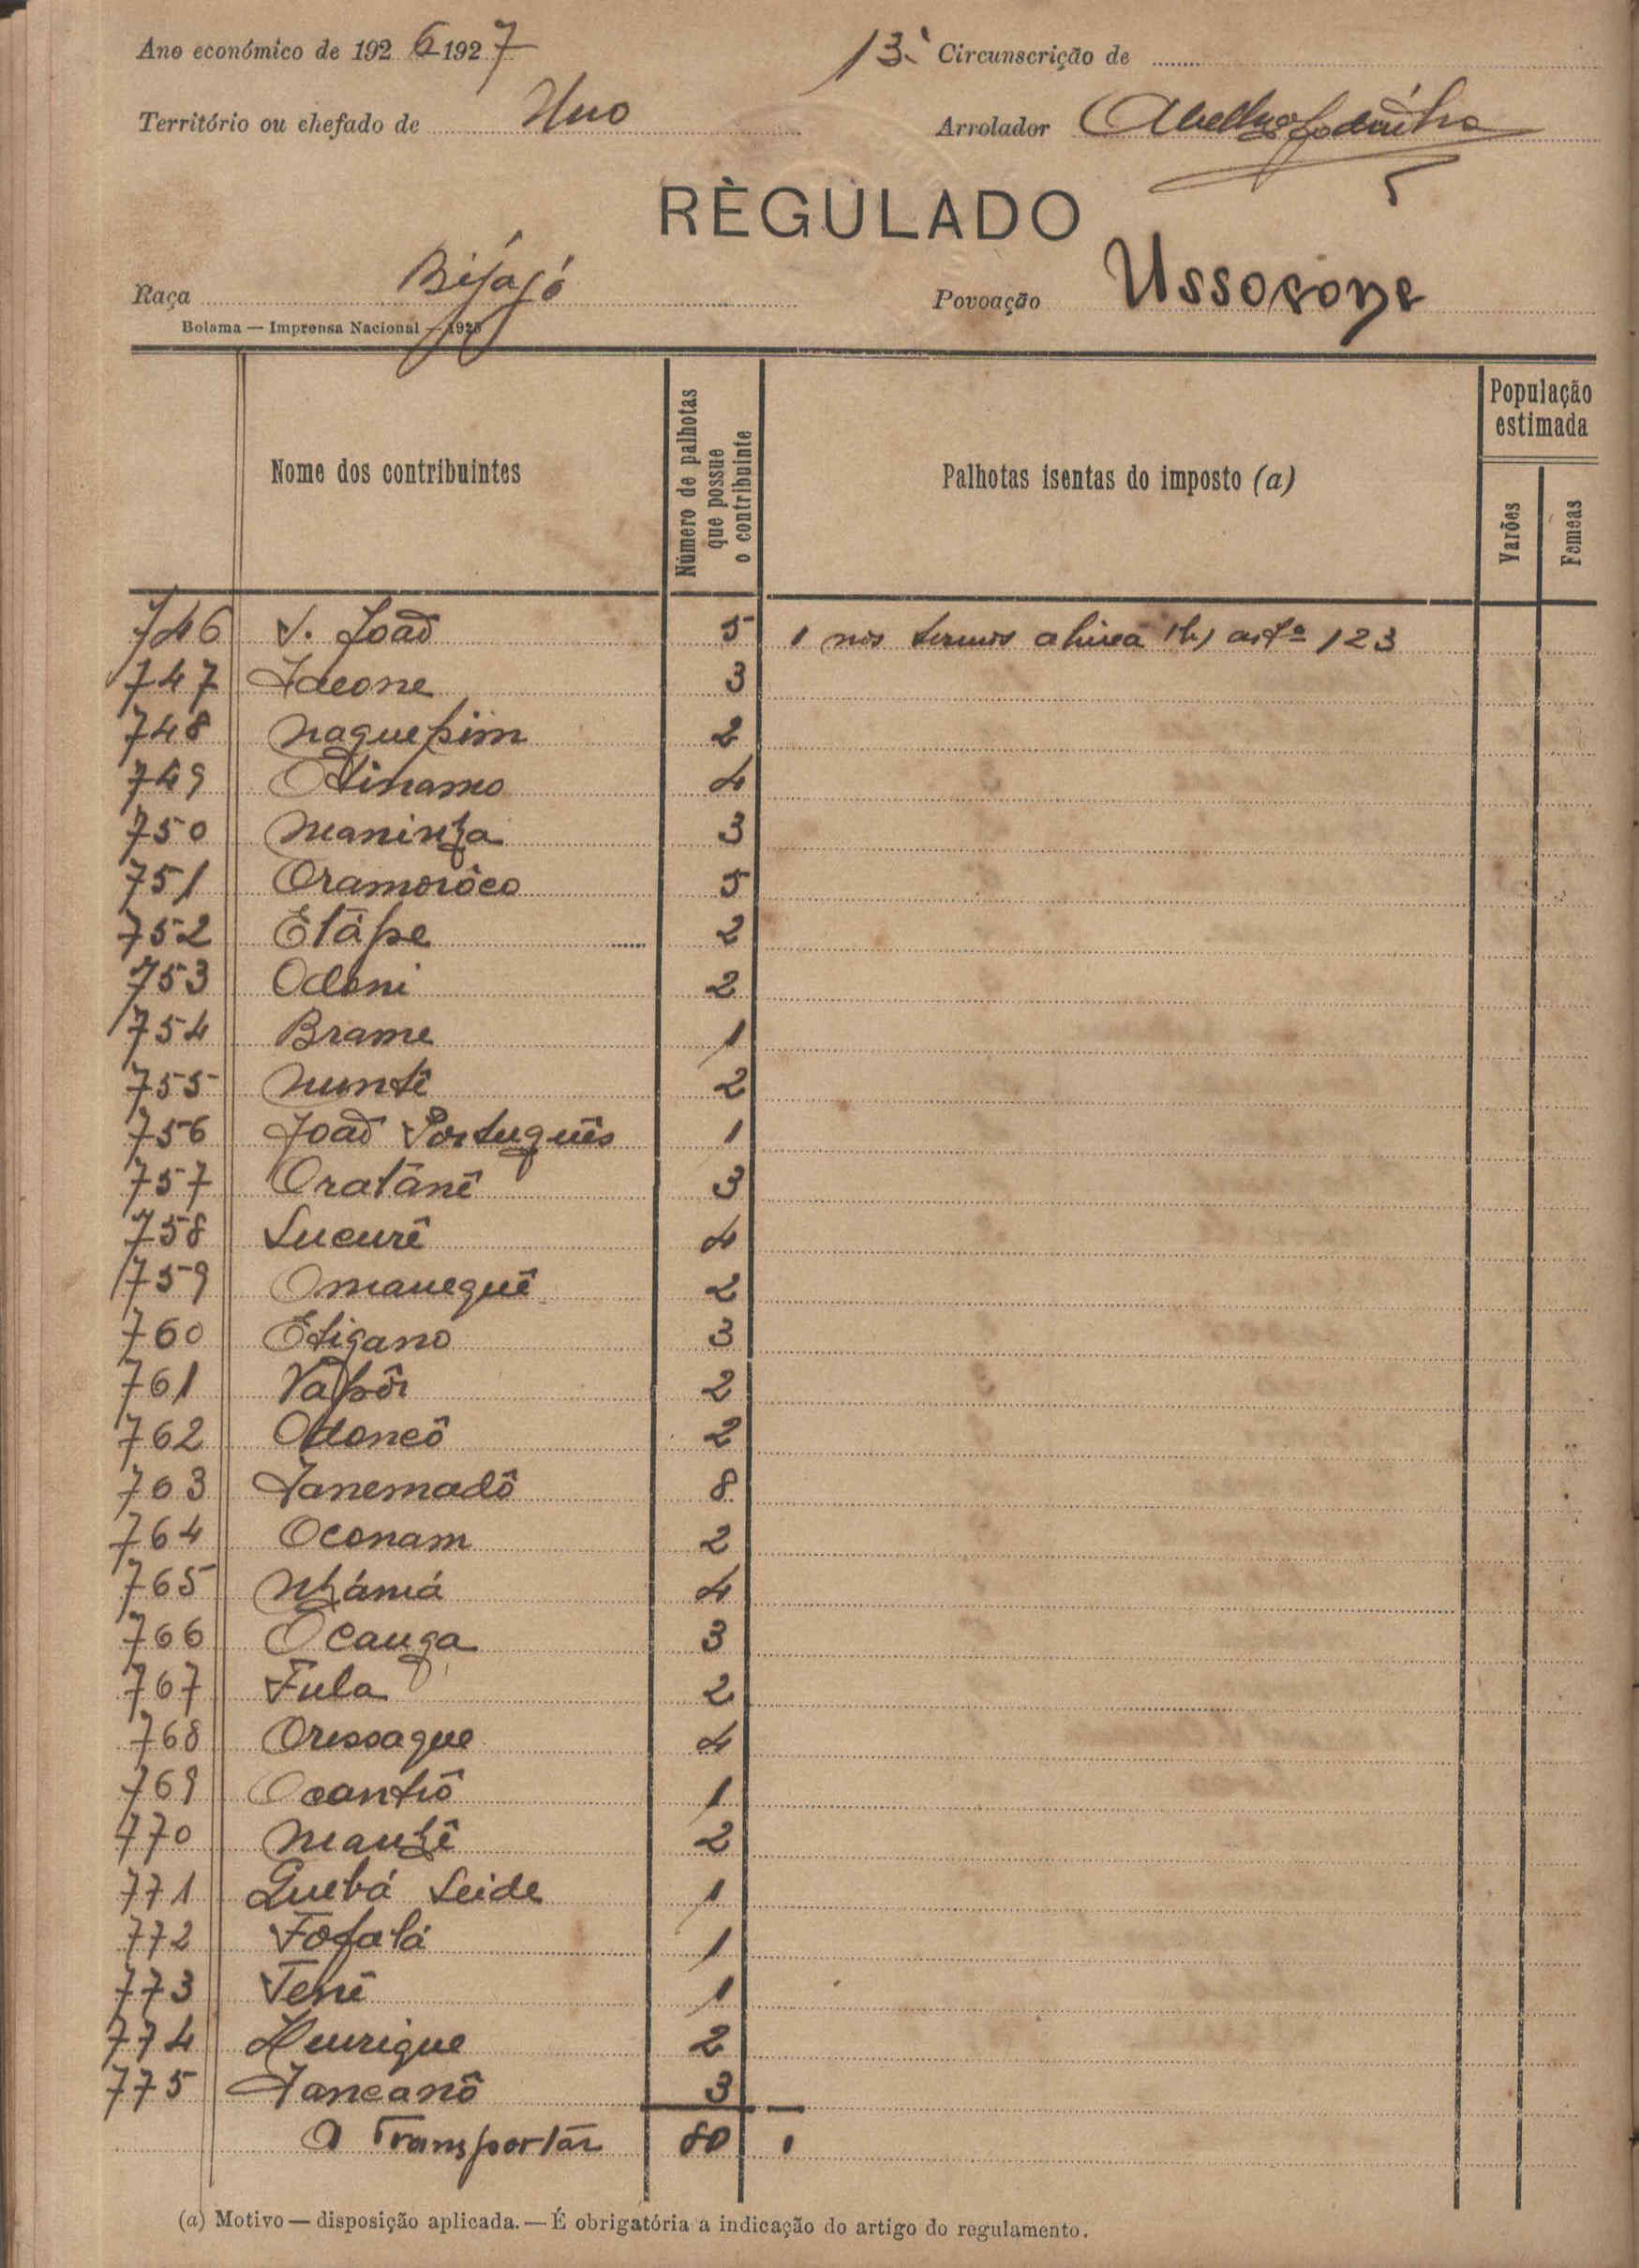 Ano económico de 1926-1927 13.ª Circunscrição de
Território ou chefado de Uno Arrolador
RÈGULADO
Raça Bijajó Povoação
Bolama — Imprensa Nacional — 1925
Nome dos contribuintes
Número de palhotas que possue o contribuinte
Palhotas isentas do imposto (a)
População estimada
Varões
Femeas
746 S. João 5 1 nos termos alinea (b) artº 123
747 3
748 Naquepim 2
749 4
750 Maninha 3
751 Oramorôco 5
752 Etápe 2
753 Odoni 2
754 Brame 1
755 Nuntê 2
756 João Português 1
757 Oratânê 3
758 Lucurê 4
759 Omaneguê 2
760 Etigano 3
761 Vapôr 2
762 2
763 Janemadô 8
764 Oconam 2
765 Nhámá 4
766 Ocanga 3
767 Fula 2
768 Oressaque 4
769 Ocantiô 1
770 Manhê 2
771 Quebá Seide 1
772 Fofalá 1
773 Tenê 1
774 Henrique 2
775 Jancanô 3
A Transportar 80 1
(a) Motivo — disposição aplicada. — É obrigatória a indicação do artigo do regulamento.